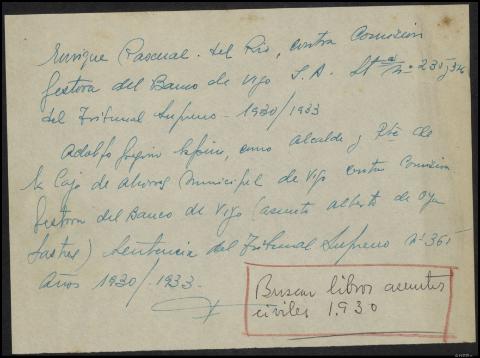 Enrique Pascual del Rio, contra Comisión
gestora del Banco de Vigo S.A. Stª nº 230
del Tribunal Supremo - 1930/1933
Adolfo Gregorio Espino, como Alcalde y Pte de
la Caja de Ahorros Municipal de Vigo contra Comisión
gestora del Banco de Vigo (asunto Alberto de Oya
Sastres) Sentencia del Tribunal Supremo nº 361
Años 1930/-1933.-
Buscar libros asuntos
civiles 1.930